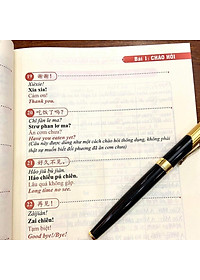 Bài 1: CHÀO HỎI
19 谢谢!
Xièxie!
Xia xịa!
Cám ơn!
Thank you.
20 吃饭了吗?
Chī fàn le ma?
Strơ phan lơ ma?
Ăn cơm chưa?
Have you eaten yet?
(Câu này được dùng như một cách chào hỏi thông dụng, không phải
thật sự muốn biết đối phương đã ăn cơm chưa)
21 好久不见。
Hǎo jiǔ bú jiàn.
Hảo chiểu pú chiên.
Lâu quá không gặp.
Long time no see.
22 再见!
Zàijiàn!
Zai chiên!
Tạm biệt!
Good bye!/Bye!